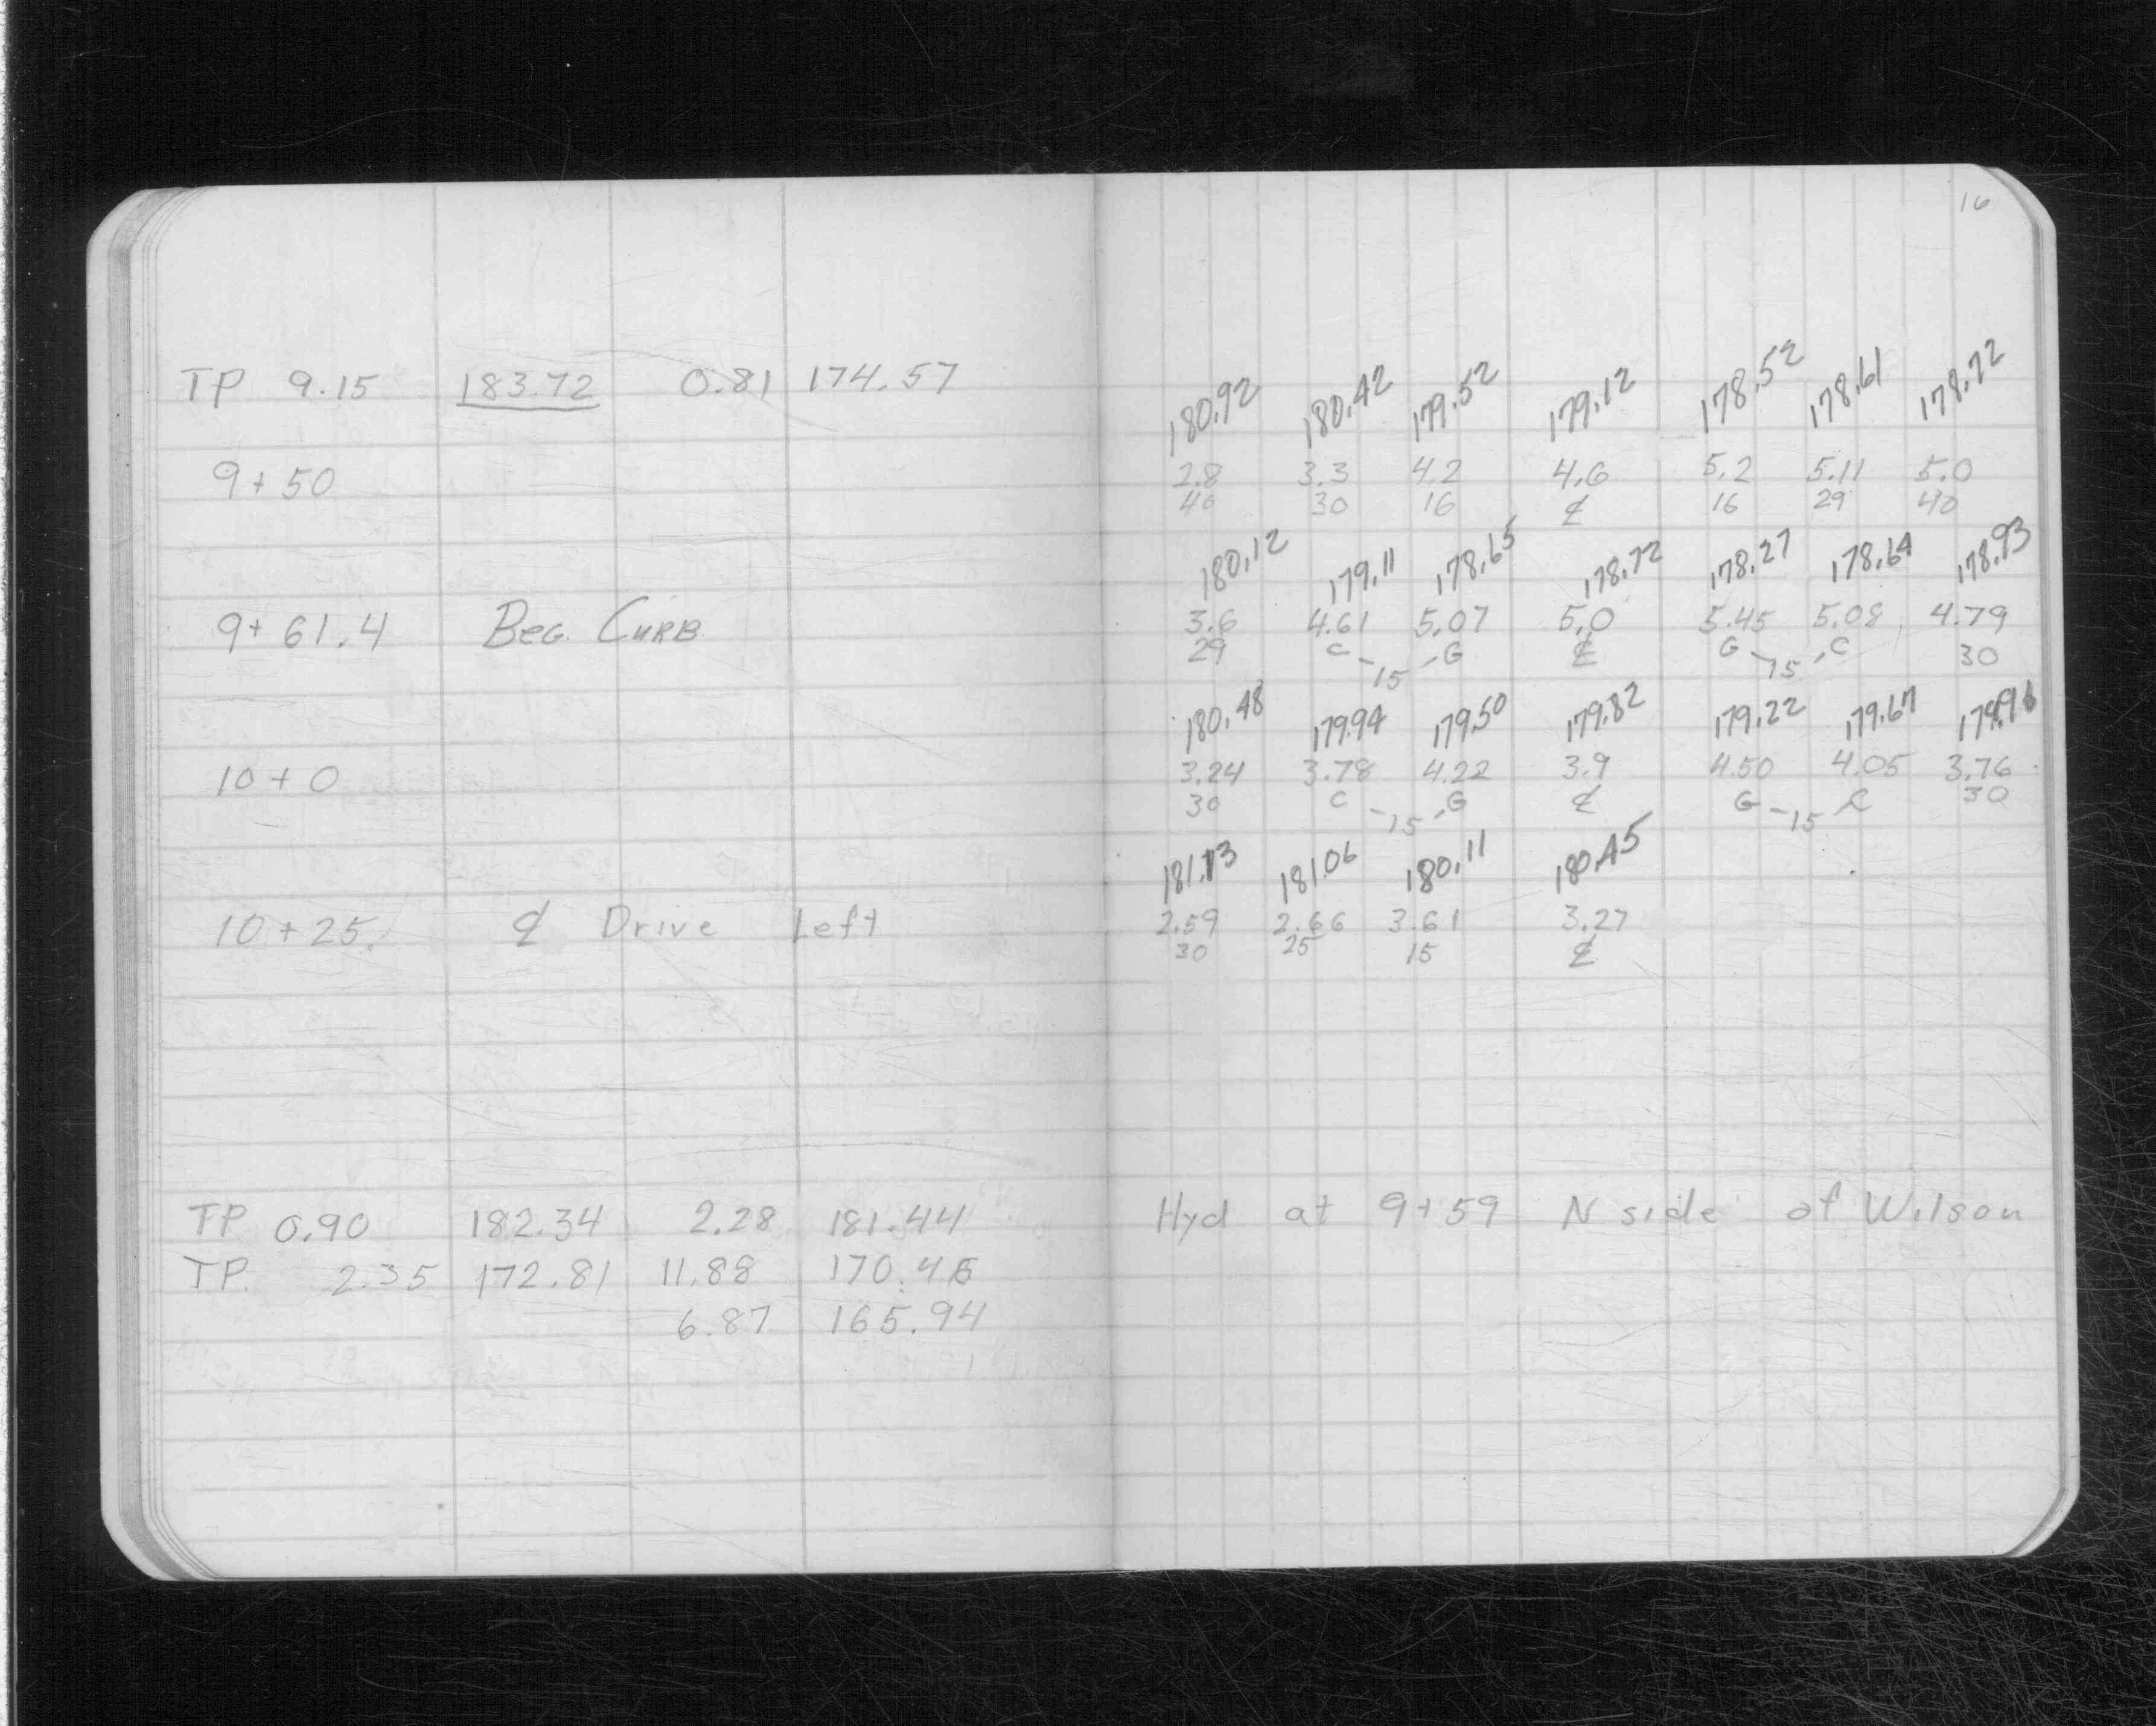 16
TP 9.15 183.72 0.81 174.57
180.92 180.42 179.52 179.12 178.52 178.61 178.72
9+50
2.8 3.3 4.2 4.6 5.2 5.11 5.0
40 30 16 ℄ 16 29 40
180.12 179.11 178.65 178.72 178.27 178.64 178.93
9+61.4 BEG. CURB
3.6 4.61 5.07 5.0 5.45 5.08 4.79
29 C -15- G ℄ G -15- C 30
180.48 179.94 179.50 179.82 179.22 179.67 179.96
10+0
3.24 3.78 4.22 3.9 4.50 4.05 3.76
30 C -15- G ℄ G -15- C 30
181.13 181.06 180.11 180.45
10+25 ℄ Drive Left
2.59 2.66 3.61 3.27
30 25 15 ℄
TP 0.90 182.34 2.28 181.44 Hyd at 9+59 N side of Wilson
TP. 2.35 172.81 11.88 170.46
6.87 165.94